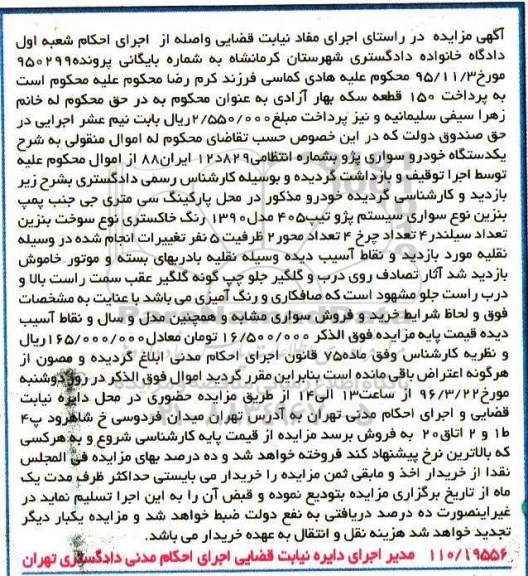 آگهی مزایده در راستای اجرای مفاد نیابت قضایی واصله از اجرای احکام شعبه اول
دادگاه خانواده دادگستری شهرستان کرمانشاه به شماره بایگانی پرونده۹۵۰۲۹۹
مورخ۹۵/۱۱/۳ محکوم علیه هادی کماسی فرزند کرم رضا محکوم علیه محکوم است
به پرداخت ۱۵۰ قطعه سکه بهار آزادی به عنوان محکوم به در حق محکوم له خانم
زهرا سیفی سلیمانیه و نیز پرداخت مبلغ۲/۵۵۰/۰۰۰ریال بابت نیم عشر اجرایی در
حق صندوق دولت که در این خصوص حسب تقاضای محکوم له اموال منقولی به شرح
یکدستگاه خودرو سواری پژو بشماره انتظامی۸۲۹د۱۲ ایران۸۸ از اموال محکوم علیه
توسط اجرا توقیف و بازداشت گردیده و بوسیله کارشناس رسمی دادگستری بشرح زیر
بازدید و کارشناسی گردیده خودرو مذکور در محل پارکینگ سی متری جی جنب پمپ
بنزین نوع سواری سیستم پژو تیپ۴۰۵ مدل۱۳۹۰ رنگ خاکستری نوع سوخت بنزین
تعداد سیلندر۴ تعداد چرخ ۴ تعداد محور۲ ظرفیت ۵ نفر تغییرات انجام شده در وسیله
نقلیه مورد بازدید و نقاط آسیب دیده وسیله نقلیه بادربهای بسته و موتور خاموش
بازدید شد آثار تصادف روی درب و گلگیر جلو چپ گونه گلگیر عقب سمت راست بالا و
درب راست جلو مشهود است که صافکاری و رنگ آمیزی می باشد با عنایت به مشخصات
فوق و لحاظ شرایط خرید و فروش سواری مشابه و همچنین مدل و سال و نقاط آسیب
دیده قیمت پایه مزایده فوق الذکر ۱۶/۵۰۰/۰۰۰ تومان معادل۱۶۵/۰۰۰/۰۰۰ریال
و نظریه کارشناس وفق ماده۷۵ قانون اجرای احکام مدنی ابلاغ گردیده و مصون از
هرگونه اعتراض باقی مانده است بنابراین مقرر گردید اموال فوق الذکر در روز دوشنبه
مورخ۹۶/۳/۲۲ از ساعت۱۳ الی۱۴ از طریق مزایده حضوری در محل دایره نیابت
قضایی و اجرای احکام مدنی تهران به آدرس تهران میدان فردوسی خ شاهرود پ۴
ط۱ و ۲ اتاق۲۰ به فروش برسد مزایده از قیمت پایه کارشناسی شروع و به هرکسی
که بالاترین نرخ پیشنهاد کند فروخته خواهد شد و ده درصد بهای مزایده فی المجلس
نقدا از خریدار اخذ و مابقی ثمن مزایده را خریدار می بایستی حداکثر ظرف مدت یک
ماه از تاریخ برگزاری مزایده بتودیع نموده و قبض آن را به این اجرا تسلیم نماید در
غیراینصورت ده درصد دریافتی به نفع دولت ضبط خواهد شد و مزایده یکبار دیگر
تجدید خواهد شد هزینه نقل و انتقال به عهده خریدار می باشد.
۱۱۰/۱۹۵۵۶ مدیر اجرای دایره نیابت قضایی اجرای احکام مدنی دادگستری تهران